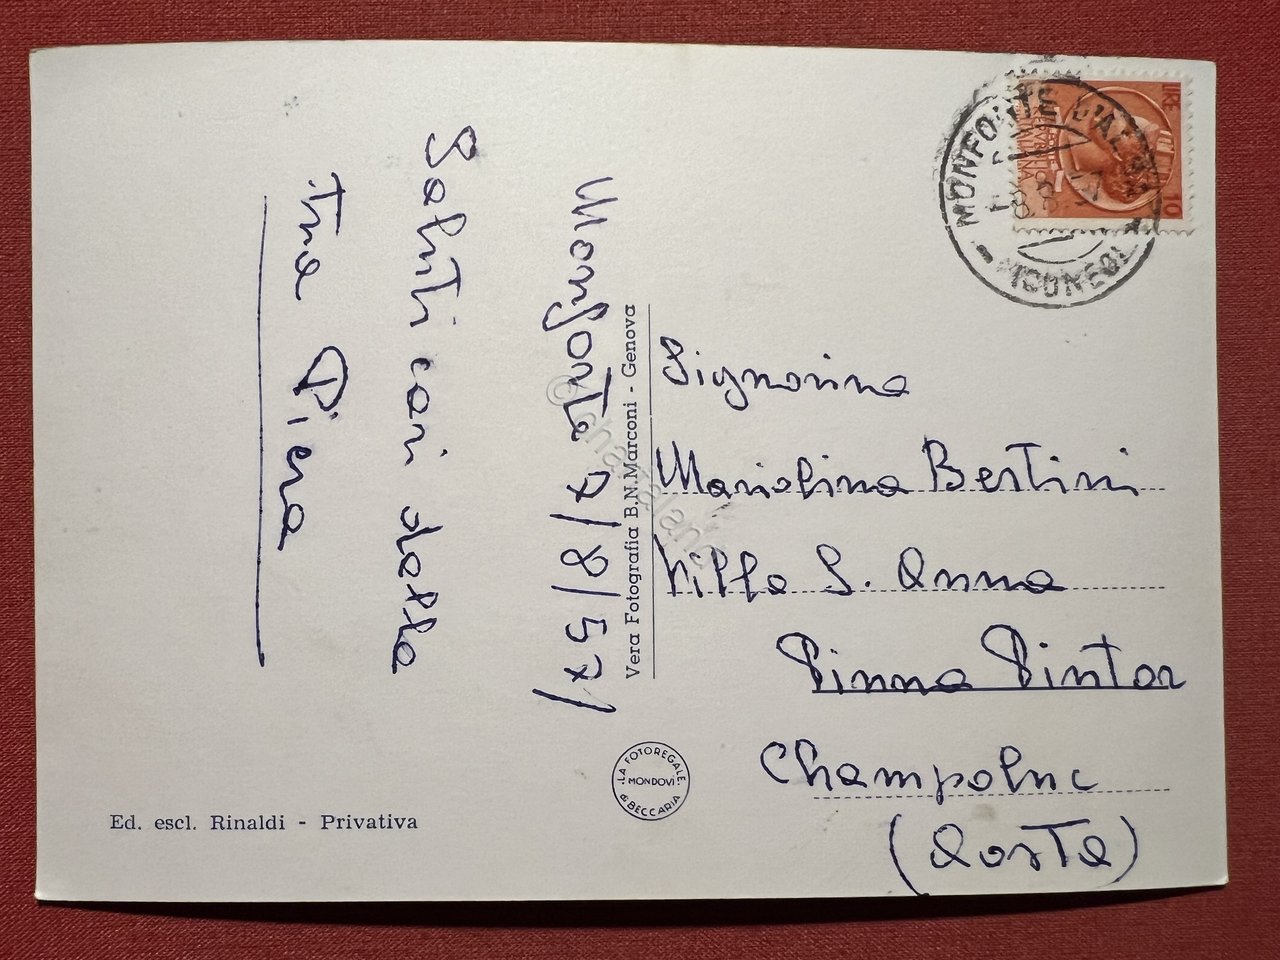 Monforte 7/8/57
Saluti cari dalla
Tua Piera
Signorina
Mariolina Bertini
Villa S. Anna
Pinna Pintor
Champoluc
(Aosta)
Vera Fotografia B.N.Marconi - Genova
LA FOTOREGALE
MONDOVI
di BECCARIA
Ed. escl. Rinaldi - Privativa
MONFORTE D'ALBA
LIRE 10
© chartaland